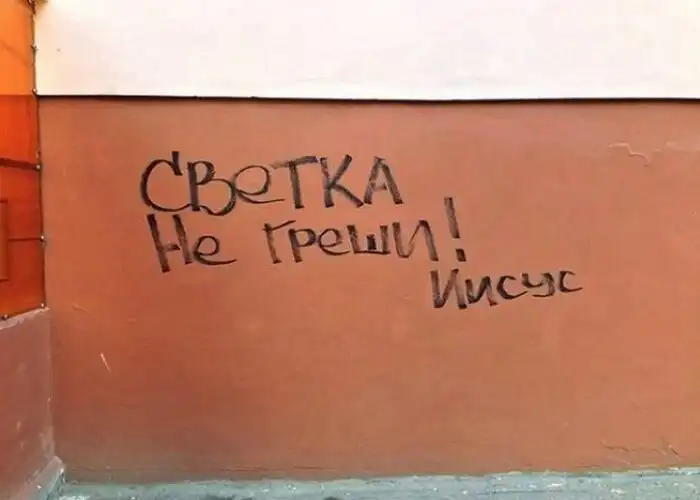 Светка
Не греши!
Иисус